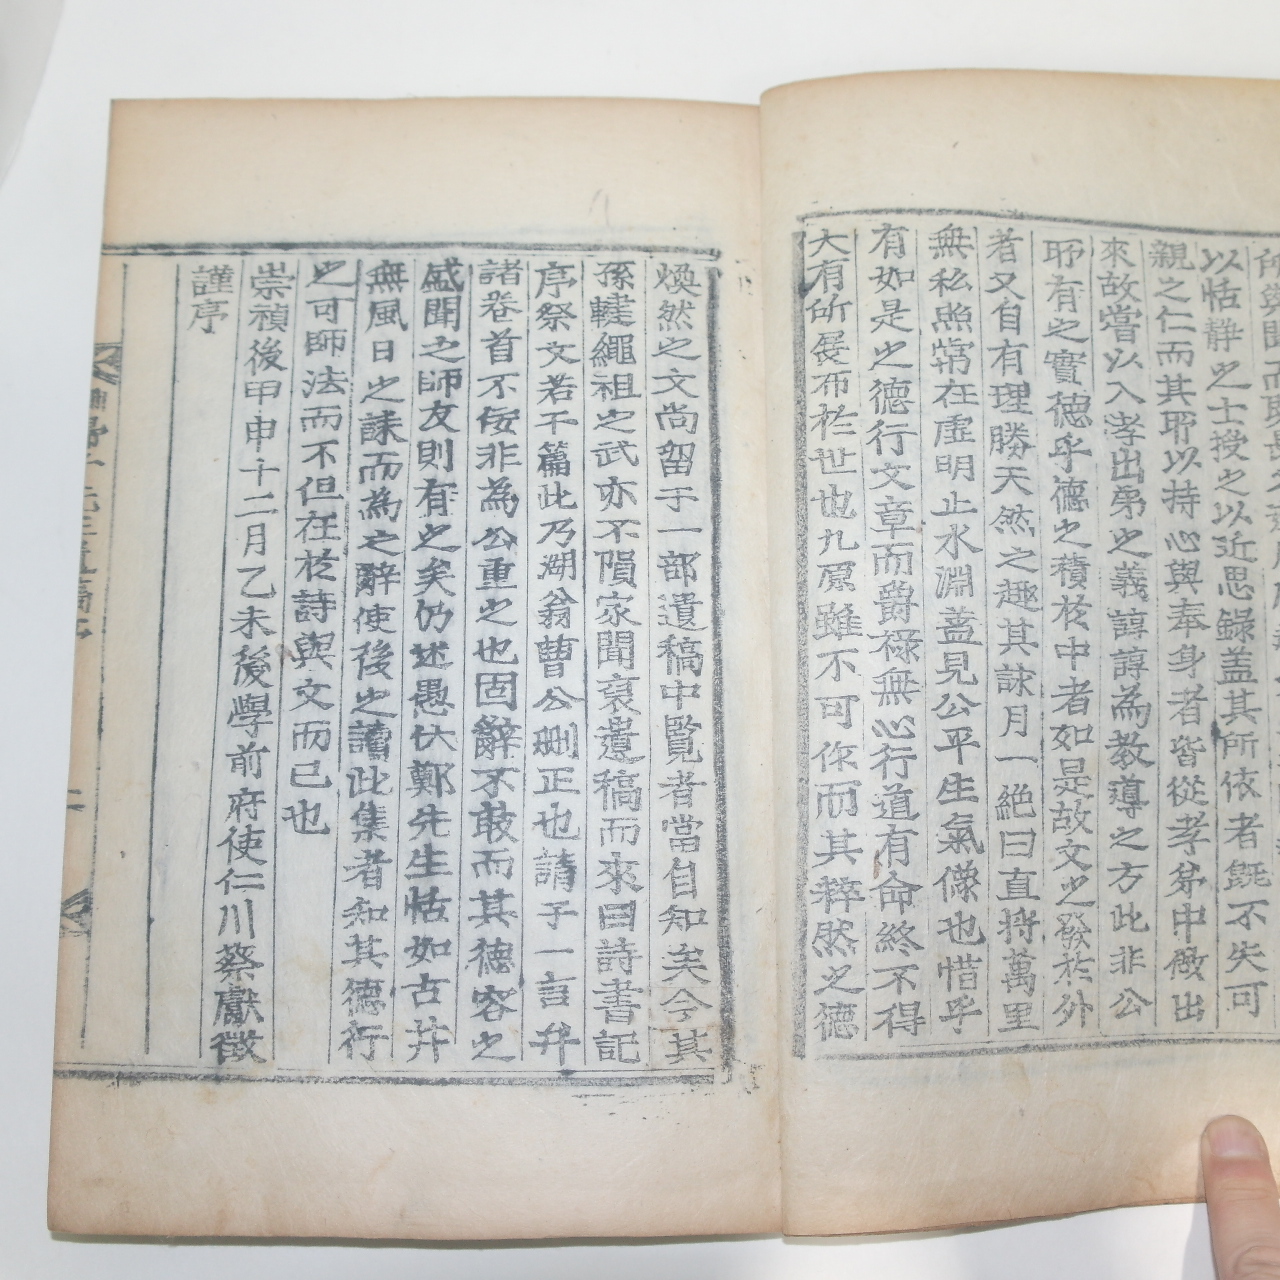 以恬静之士授之以近思錄盖其所依者旣不失可
親之仁而其耶以持心與奉身者皆從孝弟中做出
來故嘗以入孝出弟之義諄諄為教導之方此非公
耶有之實德乎德之積於中者如是故文之發於外
者又自有理勝天然之趣其詠月一絶曰直將萬里
無私照常在虛明止水淵盖見公平生氣像也惜乎
有如是之德行文章而爵祿無心行道有命終不得
大有所展布於世也九原雖不可作而其粹然之德
煥然之文尚留于一部遺稿中覽者當自知矣今其
孫繩祖之武亦不隕家聞裒遺稿而來曰詩書記
序祭文若干篇此乃湖翁曹公刪正也請子一言弁
諸卷首不佞非為公重之也固辭不敢而其德容之
盛聞之師友則有之矣仍述愚伏鄭先生恬如古井
無風日之誄而為之辭使後之讀此集者知其德行
之可師法而不但在於詩與文而已也
崇禎後甲申十二月乙未後學前府使仁川蔡獻徵
謹序